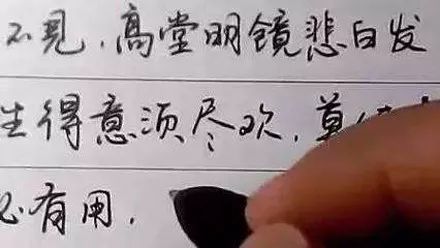 不见,高堂明镜悲白发
生得意须尽欢,莫
必有用,